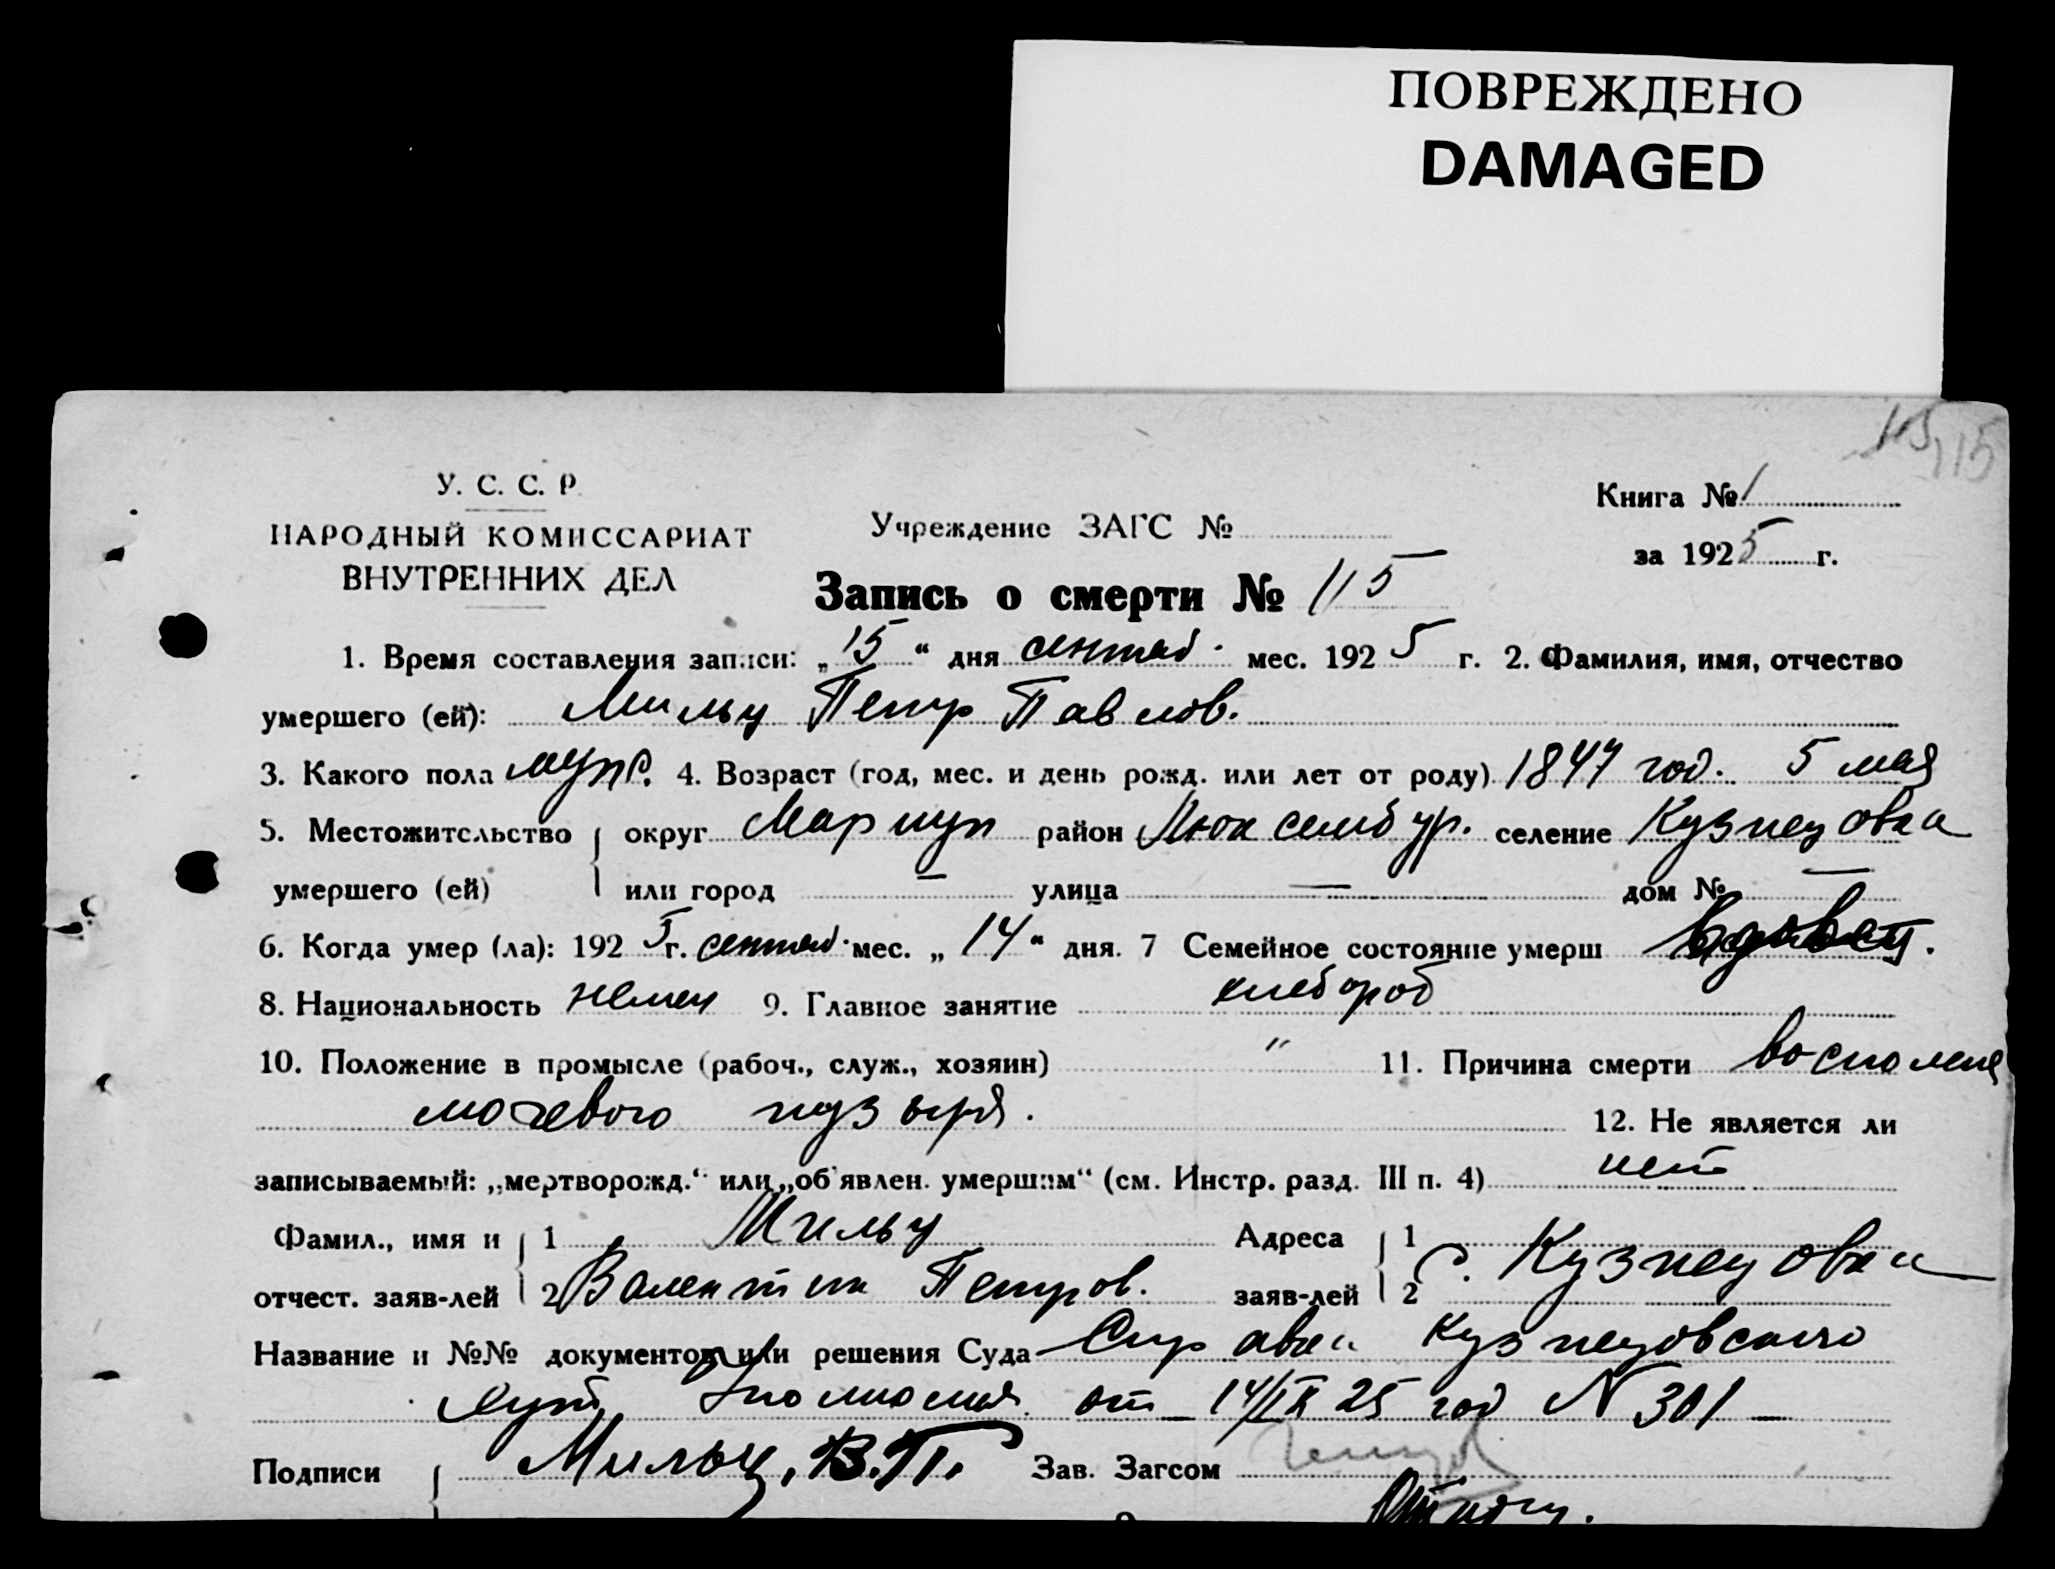 ПОВРЕЖДЕНО
DAMAGED
115
У. С. С. Р.
НАРОДНЫЙ КОМИССАРИАТ
ВНУТРЕННИХ ДЕЛ
Учреждение ЗАГС №
Книга № 1
за 1925 г.
Запись о смерти № 115
1. Время составления записи: „15“ дня сентяб. мес. 1925 г. 2. Фамилия, имя, отчество
умершего (ей): Мильц Петр Павлов.
3. Какого пола муж. 4. Возраст (год, мес. и день рожд. или лет от роду) 1847 год. 5 мая
5. Местожительство округ Мариуп район Люксембур. селение Кузнецовка
умершего (ей) или город — улица — дом № —
6. Когда умер (ла): 1925 г. сентяб. мес. „14“ дня. 7 Семейное состояние умерш вдовец.
8. Национальность немец 9. Главное занятие хлебороб
10. Положение в промысле (рабоч., служ., хозяин) " 11. Причина смерти
мочевого пузыря. 12. Не является ли
записываемый: „мертворожд.“ или „об'явлен. умершим“ (см. Инстр. разд. III п. 4) нет
Фамил., имя и 1 Мильц Адреса 1
отчест. заяв-лей 2 Валентин Петров. заяв-лей 2 с. Кузнецовка
Название и №№ документов или решения Суда Справка Кузнецовского
от 14/IX 25 год N 301
Подписи Мильц, В. П. Зав. Загсом